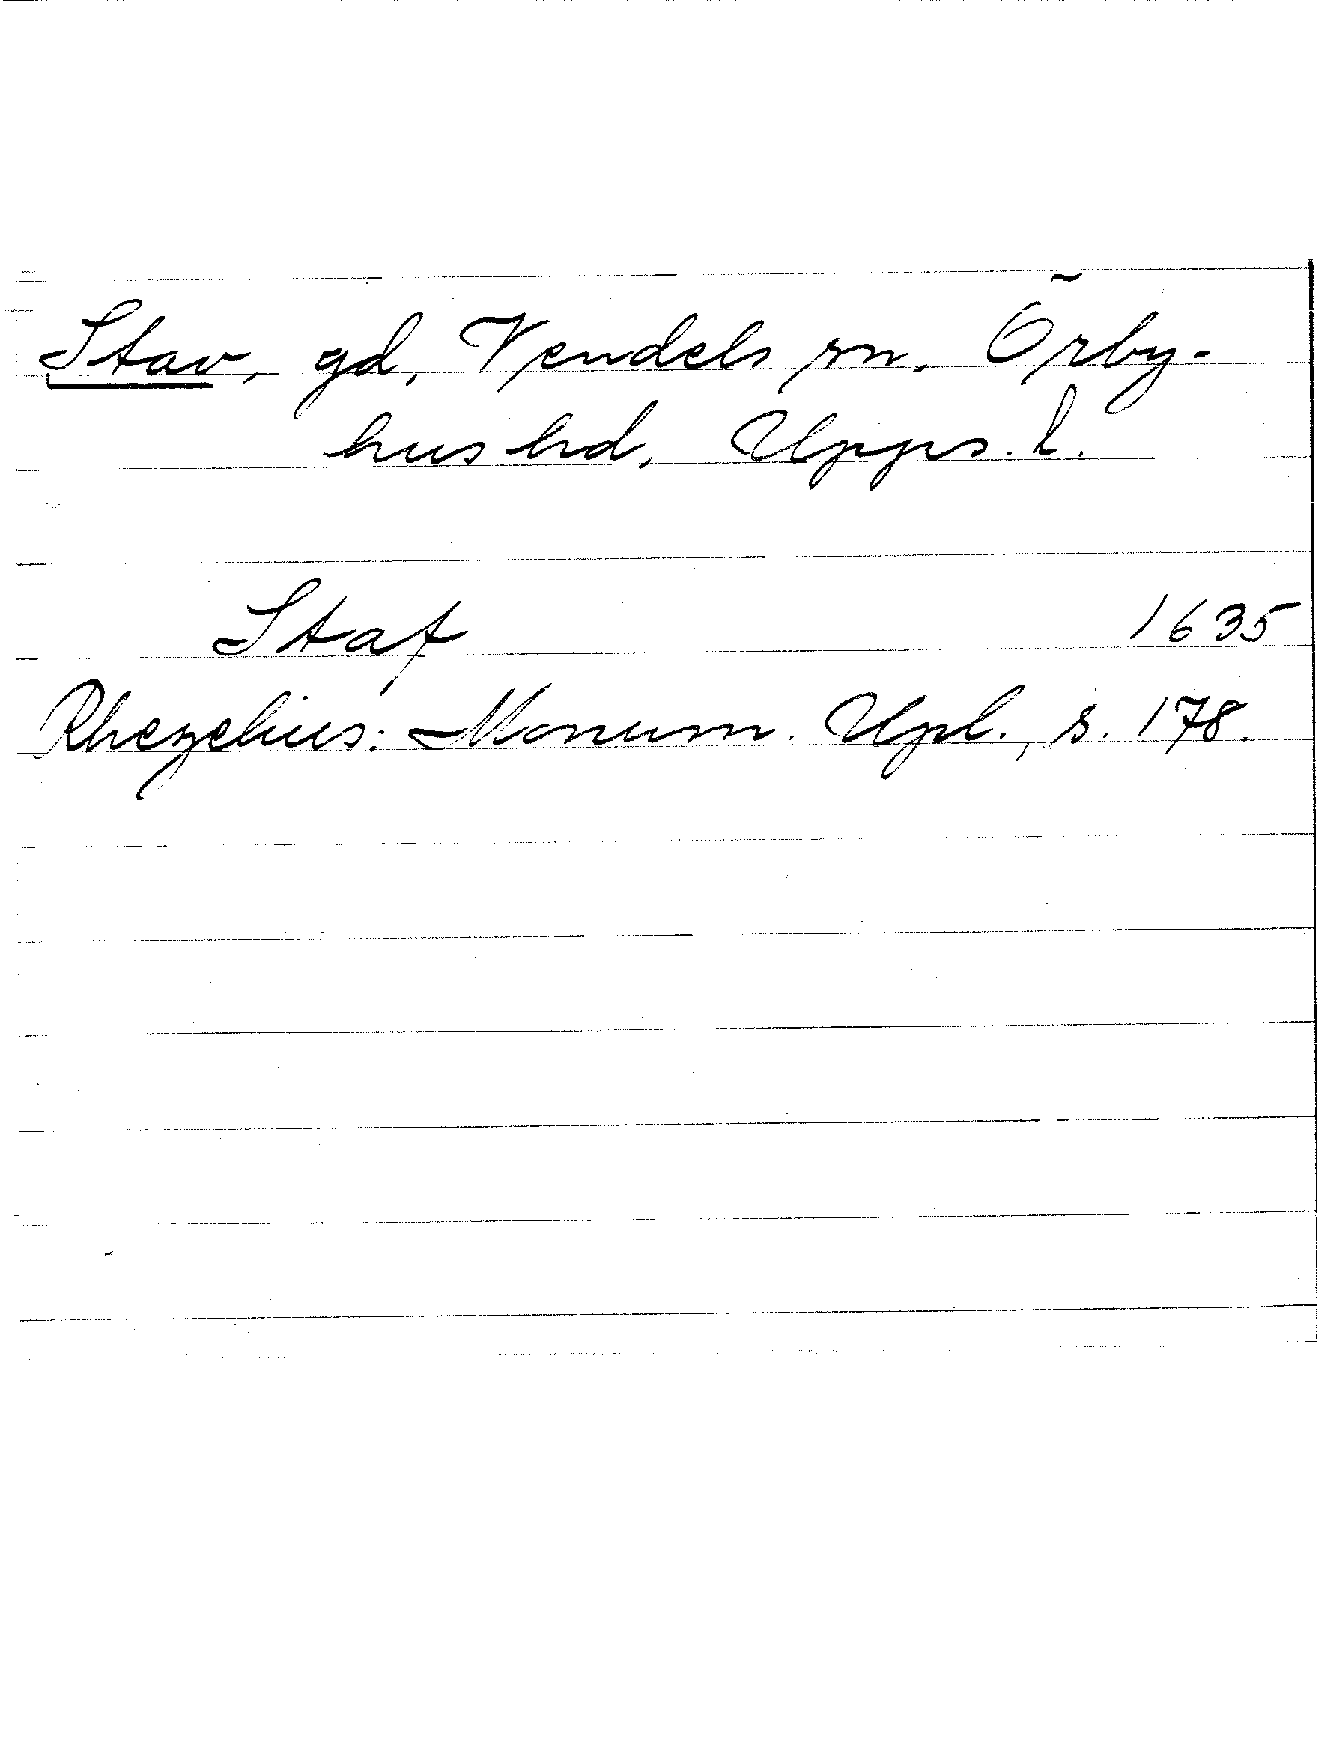 Stav, gd, Vendels sn, Örby-
hus hd, Upps. l.
Staf 1635
Rhezelius: Monum. Upl., s. 178.